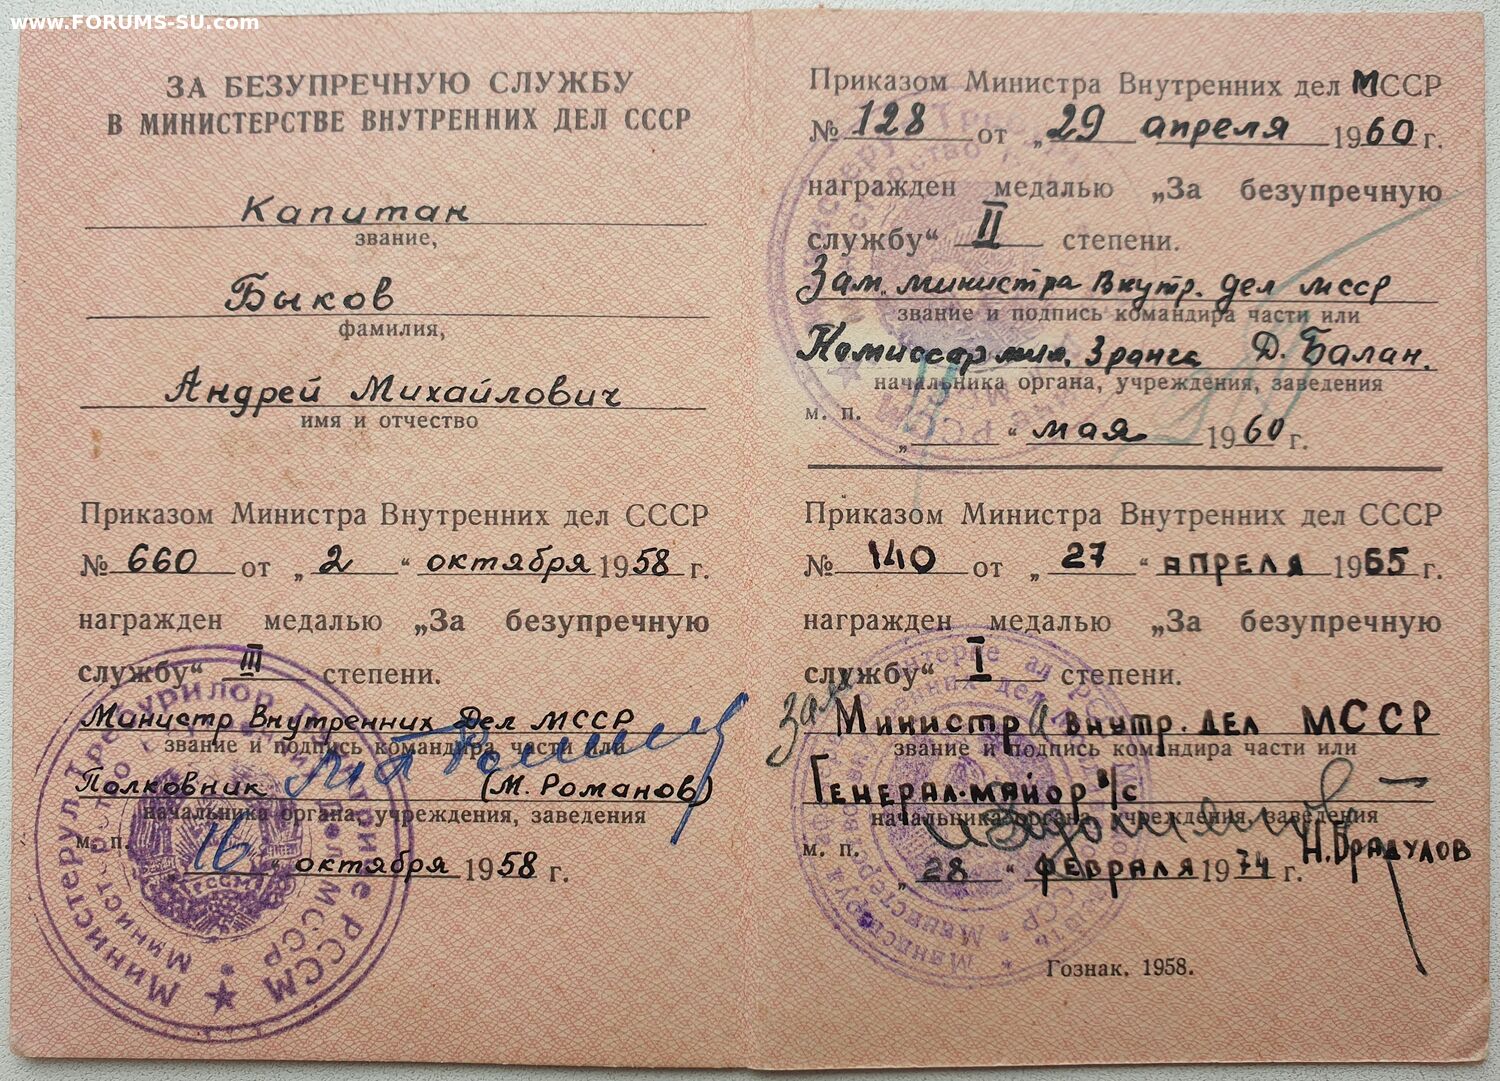 www.FORUMS-SU.com
ЗА БЕЗУПРЕЧНУЮ СЛУЖБУ
В МИНИСТЕРСТВЕ ВНУТРЕННИХ ДЕЛ СССР
Капитан
звание,
Быков
фамилия,
Андрей Михайлович
имя и отчество
Приказом Министра Внутренних дел СССР
№ 660 от „2“ октября 1958 г.
награжден медалью „За безупречную
службу“ III степени.
Министр Внутренних Дел МССР
звание и подпись командира части или
Полковник (М. Романов)
начальника органа, учреждения, заведения
м. п.
„16“ октября 1958 г.
Приказом Министра Внутренних дел МСССР
№ 128 от „29 апреля 1960 г.
награжден медалью „За безупречную
службу“ II степени.
Зам. министра Внутр. дел МССР
звание и подпись командира части или
Комиссар мил. 3 ранга Д. Балан.
начальника органа, учреждения, заведения
м. п.
„ “ мая 1960 г.
Приказом Министра Внутренних дел СССР
№ 140 от „27“ апреля 1965 г.
награжден медалью „За безупречную
службу“ I степени.
Зам Министра Внутр. дел МССР
звание и подпись командира части или
Генерал-майор в/с
начальника органа, учреждения, заведения
Н. Брадулов
м. п.
„28“ февраля 1974 г.
Гознак. 1958.